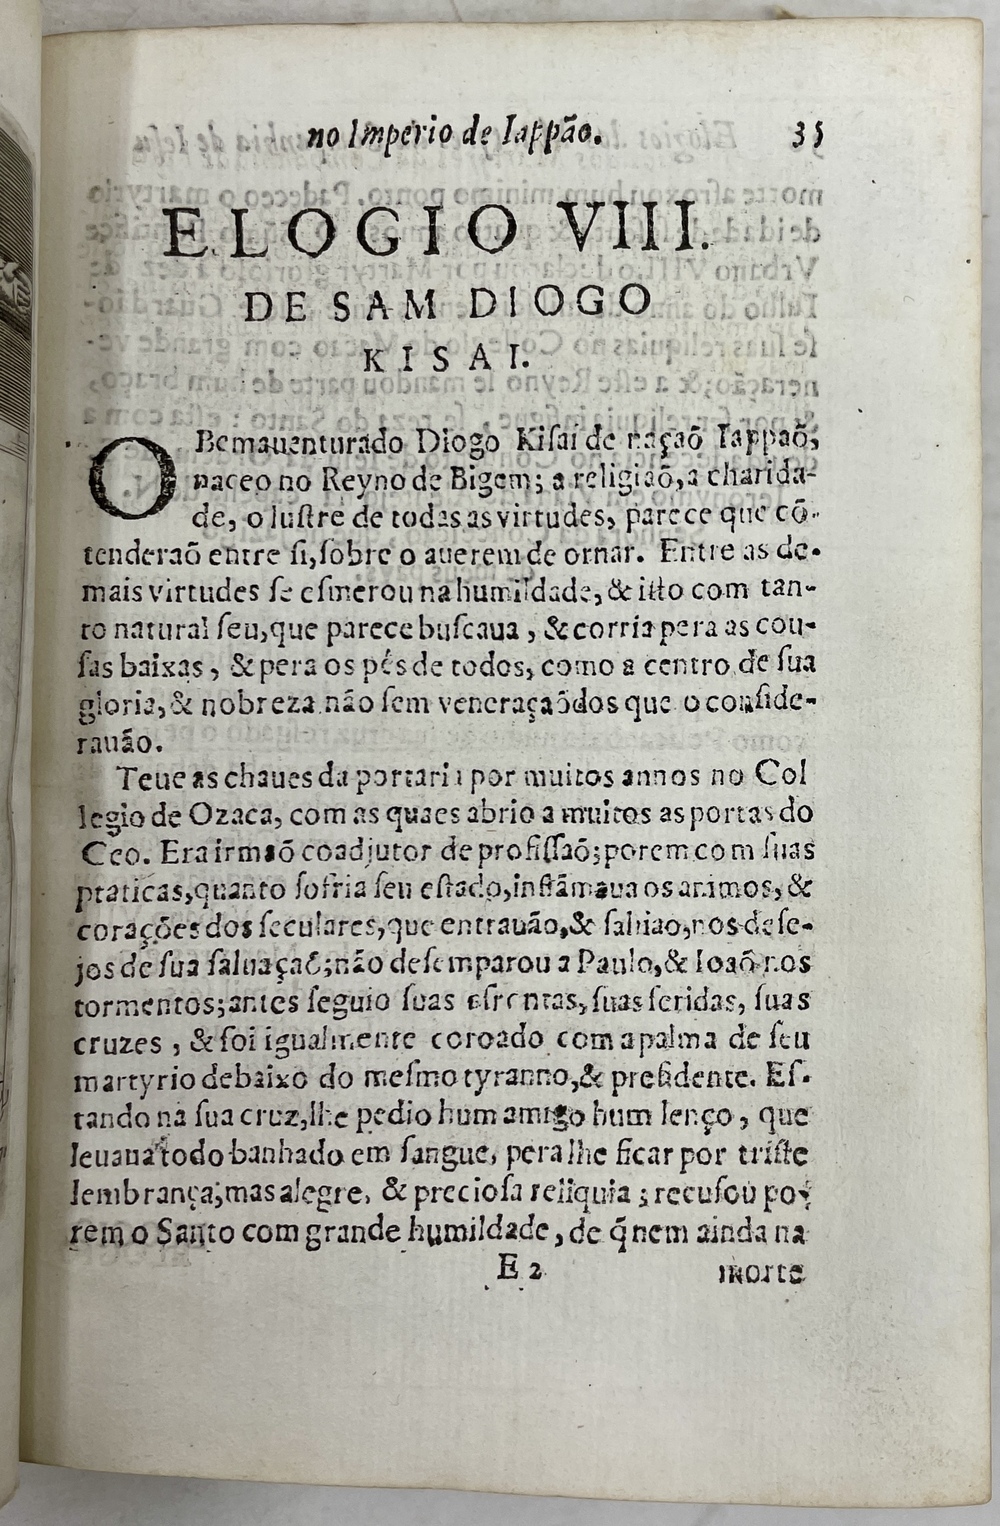 no Imperio de Iappão. 35
ELOGIO VIII.
DE SAM DIOGO
KISAI.
O Bemauenturado Diogo Kiſai de naçaõ Iappaõ,
naceo no Reyno de Bigem; a religiaõ, a charida-
de, o luſtre de todas as virtudes, parece que cõ-
tenderaõ entre ſi, ſobre o auerem de ornar. Entre as de-
mais virtudes ſe eſmerou na humildade, & iſto com tan-
to natural ſeu, que parece buſcaua, & corria pera as cou-
ſas baixas, & pera os pés de todos, como a centro de ſua
gloria, & nobreza não ſem veneraçaõ dos que o conſide-
rauão.
Teue as chaues da portaria por muitos annos no Col
legio de Ozaca, com as quaes abrio a muitos as portas do
Ceo. Era irmaõ coadjutor de profiſſaõ; porem com ſuas
praticas, quanto ſofria ſeu eſtado, inflãmaua os animos, &
corações dos ſeculares, que entrauão, & ſahião, nos deſe-
jos de ſua ſaluaçaõ; não deſemparou a Paulo, & Ioaõ nos
tormentos; antes ſeguio ſuas afrontas, ſuas feridas, ſuas
cruzes, & foi igualmente coroado com a palma de ſeu
martyrio debaixo do meſmo tyranno, & preſidente. Eſ-
tando na ſua cruz, lhe pedio hum amigo hum lenço, que
leuaua todo banhado em ſangue, pera lhe ficar por triſte
lembrança; mas alegre, & precioſa reliquia; recuſou po-
rem o Santo com grande humildade, de q̃ nem ainda na
E 2 morte